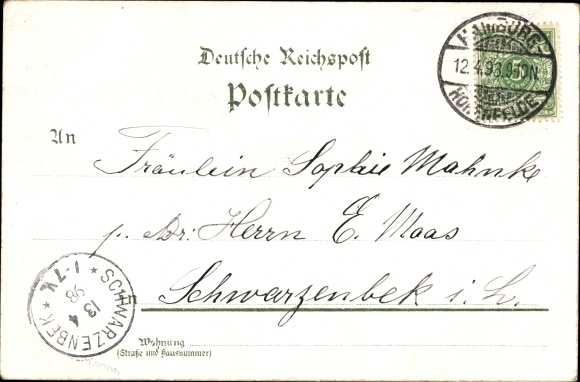 Deutsche Reichspost
Postkarte
HAMBURG-
12.4.98.9-10N
HOHENFELDE.
5
An
Fräulein Sophie Mahnke
p. Adr: Herrn E. Maas
in
Schwarzenbek i. L.
SCHWARZENBEK
13
4
98
1-7 V.
Wohnung
(Straße und Hausnummer)